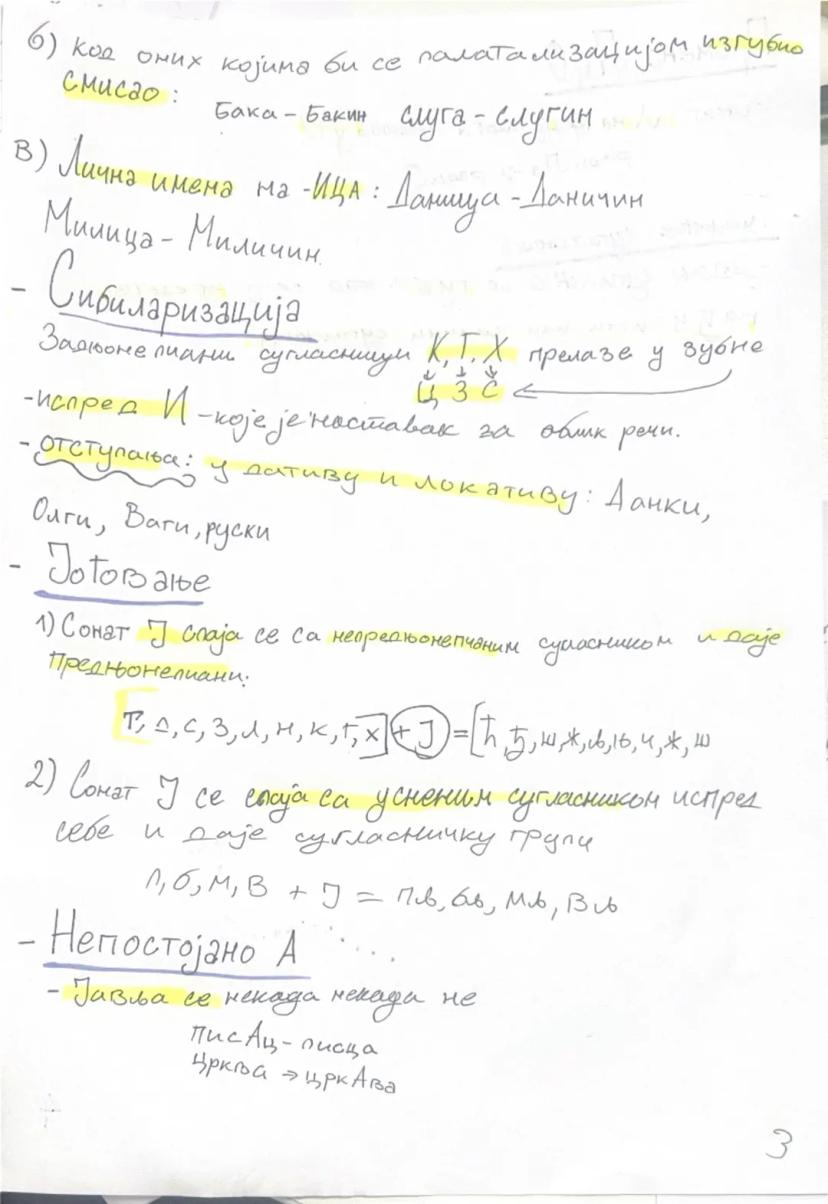 б) код оних којима би се палатализацијом изгубио
смисао: Бака - Бакин слуга - слугин
в) Лична имена на -ИЦА: Даница - Даничин
Милица - Миличин
- Сибиларизација
Задњонепчани сугласници К, Г, Х прелазе у зубне
Ц З С
-испред И - које је наставак за облик речи.
- отступања: у дативу и локативу: Данки,
Олги, Ваги, руски
- Јотовање
1) Сонат Ј спаја се са непредњонепчаним сугласником и даје
Предњонепчани:
т, д, с, з, л, н, к, г, х] + Ј = [ћ, ђ, ш, ж, љ, њ, ч, ж, ш
2) Сонат Ј се спаја са усненим сугласником испред
себе и даје сугласничку групи
п, б, м, в + Ј = пљ, бљ, мљ, вљ
- Непостојано А
- Јавља се некада некада не
писАц - писца
црква → цркАва
3